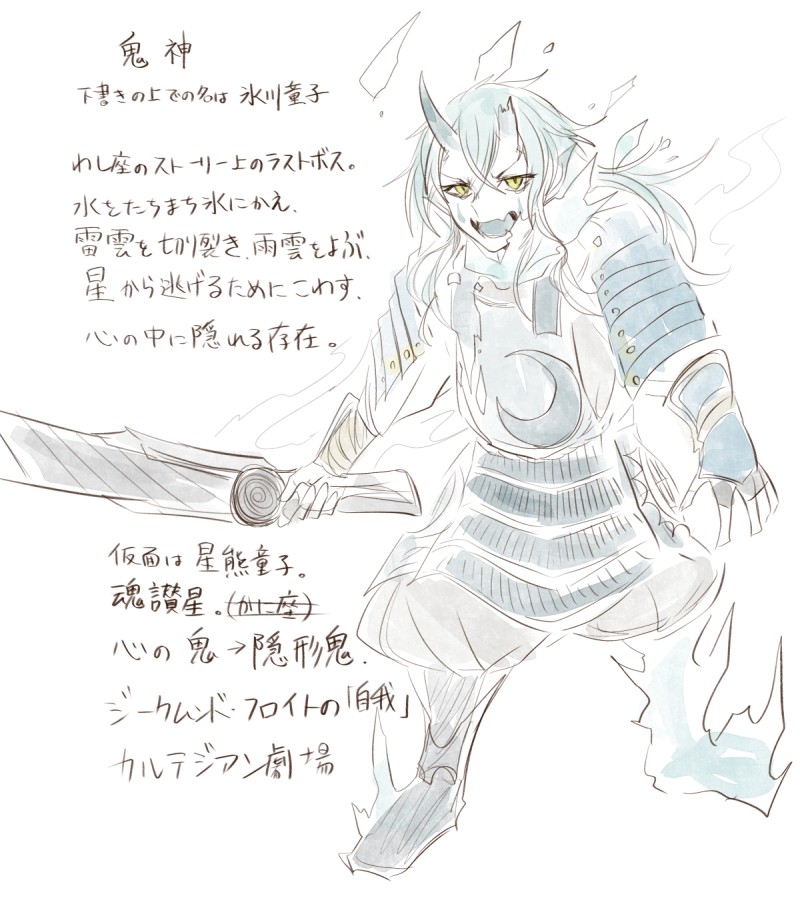 鬼神
下書きの上での名は 氷川童子
わし座のストーリー上のラストボス。
水をたちまち氷にかえ、
雷雲を切り裂き、雨雲をよぶ、
星から逃げるためにこわす、
心の中に隠れる存在。
仮面は 星熊童子。
魂讃星。(かに座)
心の鬼→隠形鬼.
ジークムンド・フロイトの「自我」
カルテジアン劇場